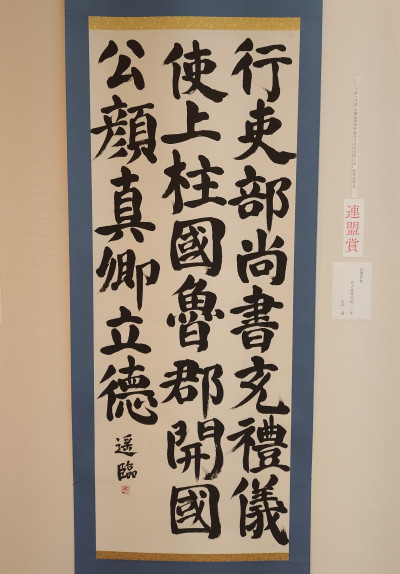 行吏部尚書充禮儀
使上柱國魯郡開國
公顔真卿立德
遥臨
連盟賞